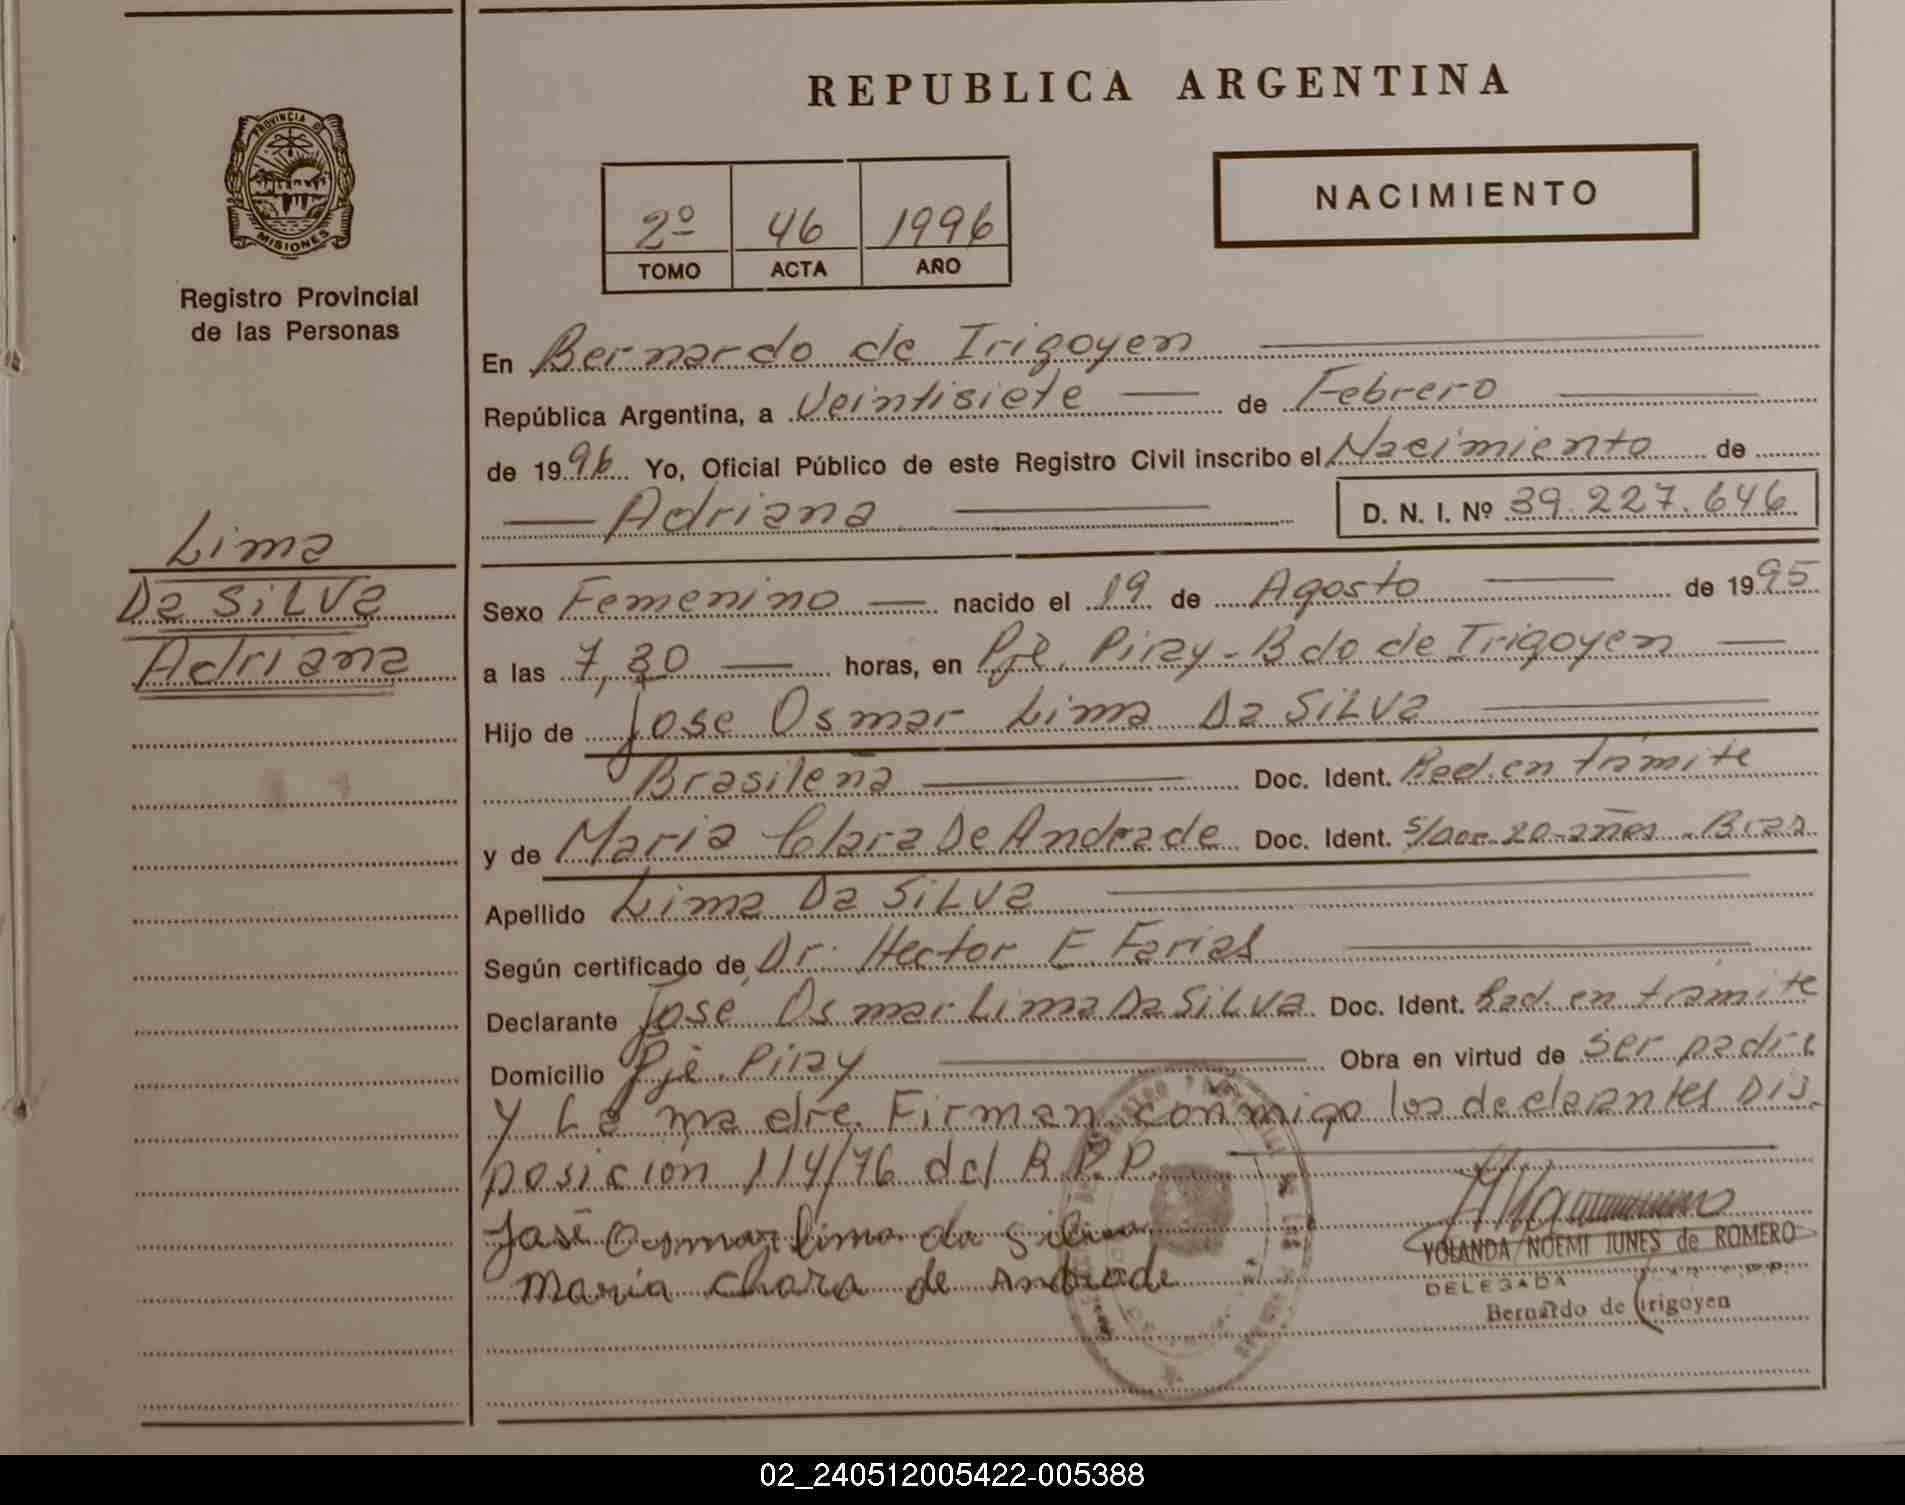 REPUBLICA ARGENTINA
NACIMIENTO
PROVINCIA DE
MISIONES
Registro Provincial
de las Personas
2º 46 1996
TOMO ACTA AÑO
En Bernardo de Irigoyen
República Argentina, a Veintisiete de Febrero
de 1996 Yo, Oficial Público de este Registro Civil inscribo el Nacimiento de
Adriana D. N. I. Nº 39.227.646
Lima
Da SiLVa
Adriana
Sexo Femenino nacido el 19 de Agosto de 1995
a las 7,30 horas, en Pje. Piray - Bdo de Irigoyen
Hijo de Jose Osmar Lima Da SiLVa
Brasileña Doc. Ident. Rad. en trámite
y de Maria Clara De Andrade Doc. Ident. s/doc. 20 años - Bras
Apellido Lima Da SiLVa
Según certificado de Dr. Hector E. Farias
Declarante José Osmar Lima Da SiLVa Doc. Ident. Rad. en trámite
Domicilio Pje. Piray Obra en virtud de ser padre
y La madre. Firman conmigo los declarantes Dis-
posicion 114/76 del R.P.P.
José Osmar Lima da Silva
Maria Clara de Andrade
YOLANDA NOEMI IUNES de ROMERO
DELEGADA
Bernardo de Irigoyen
02_240512005422-005388